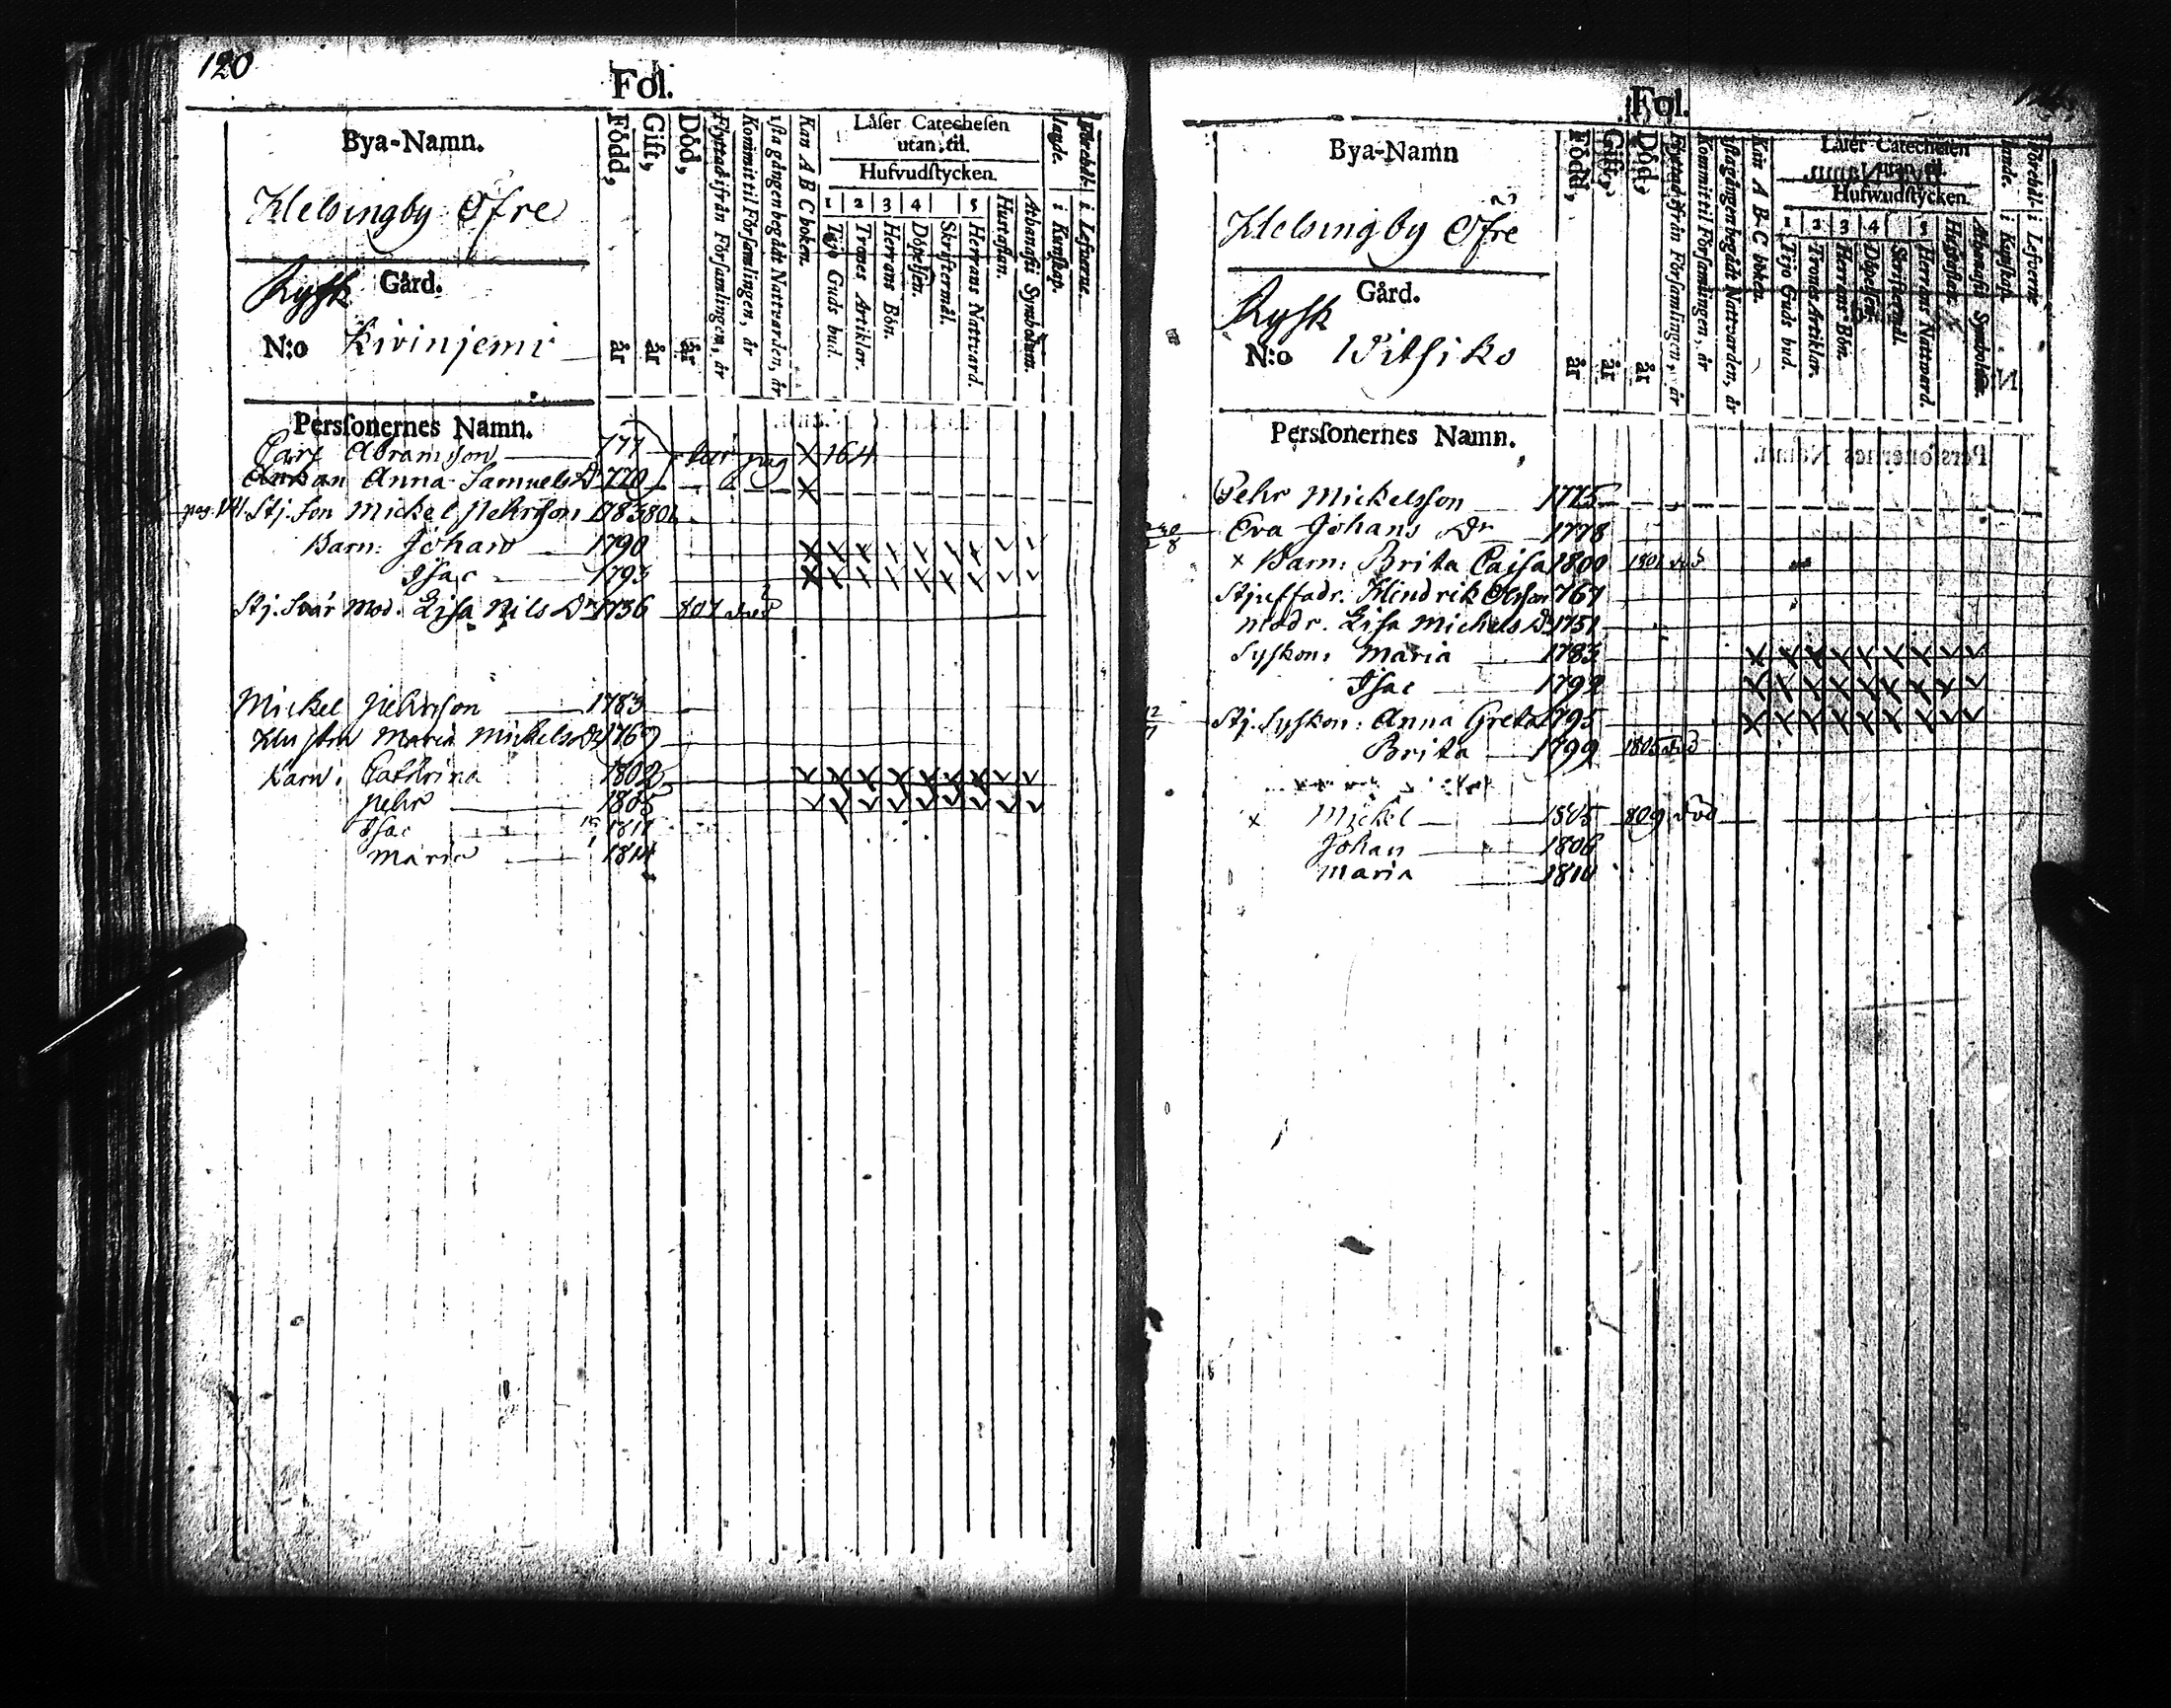 120
Fol.
Bya-Namn.
Helsingby Öfre
Rysk Gård.
N:o Kivinjemi
Född, år
Gift, år
Död, år
Flyttad ifrån Församlingen, år
Kommit til Församlingen, år
1sta gången begådt Nattvarden, år
Kan A B C boken.
Låser Catechesen
utan til.
Hufvudstycken.
1 2 3 4 5
Tijo Guds bud.
Trones Artiklar.
Herrans Bön.
Döpelsen.
Skriftermål.
Herrans Nattvard.
Hustaflan.
Athanasii Symbolum.
i Kunskap.
i Lefverne.
Personernes Namn.
Carl Abramsson 771 X 164
Enkan Anna Samuels Dr 770 X
Stj. Son Mickel Pehrsson 1783 801
Barn: Johan 1790
Isac 1793
Stj. Svär Mod. Lisa Nils Dr 1736 807 död
Mickel Pehrsson 1783
Hustru Maria Mickels Dr 176
Barn: Cathrina 1802
Pehr 1805
Isac 1811
Maria 1814
Fol.
Bya-Namn
Helsingby Öfre
Rysk Gård.
N:o Wilsiko
Född, år
Gift, år
Död, år
Flyttad ifrån Församlingen, år
Kommit til Församlingen, år
1sta gången begådt Nattvarden, år
Kan A B C boken.
Låser Catechesen
utan til.
Hufwudstycken.
1 2 3 4 5
Tijo Guds bud.
Trones Artiklar.
Herrans Bön.
Döpelsen.
Skriftermål.
Herrans Nattvard.
Hustaflan.
Athanasii Symbolum.
i Kunskap.
i Lefverne
Personernes Namn.
Pehr Mickelsson 1775
Eva Johans Dr 1778
x Barn: Brita Caisa 1800 1801 död
Stjuffadr. Hindrik Olsson 767
modr. Lisa Michels Dr 1751
Syskon: Maria 1783
Isac 1792
Stj. Syskon: Anna Greta 1795
Brita 1799 1805 död
x Mickel 1805 809 död
Johan 1806
Maria 1810